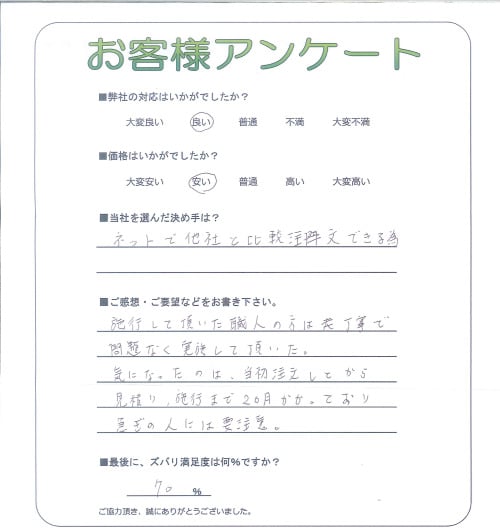 お客様アンケート
■弊社の対応はいかがでしたか？
大変良い 良い 普通 不満 大変不満
■価格はいかがでしたか？
大変安い 安い 普通 高い 大変高い
■当社を選んだ決め手は？
ネットで他社と比較注文できる為
■ご感想・ご要望などをお書き下さい。
施行して頂いた職人の方は丁寧で
問題なく実施して頂いた。
気になったのは、当初注文してから
見積り、施行まで2ヶ月かかっており
急ぎの人には要注意。
■最後に、ズバリ満足度は何%ですか？
70 %
ご協力頂き、誠にありがとうございました。